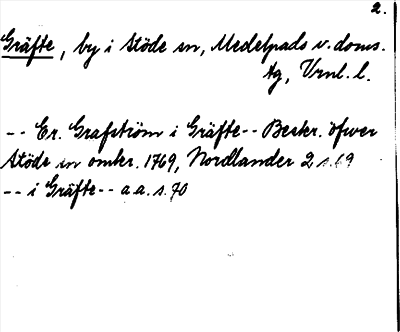 2.
Gräfte, by i Stöde sn, Medelpads v. doms.
tg, Vrnl. l.
-- Er. Grafström i Gräfte -- Beskr. öfwer
Stöde sn omkr. 1769, Nordlander 2 s. 69
-- i Gräfte -- a.a. s. 70